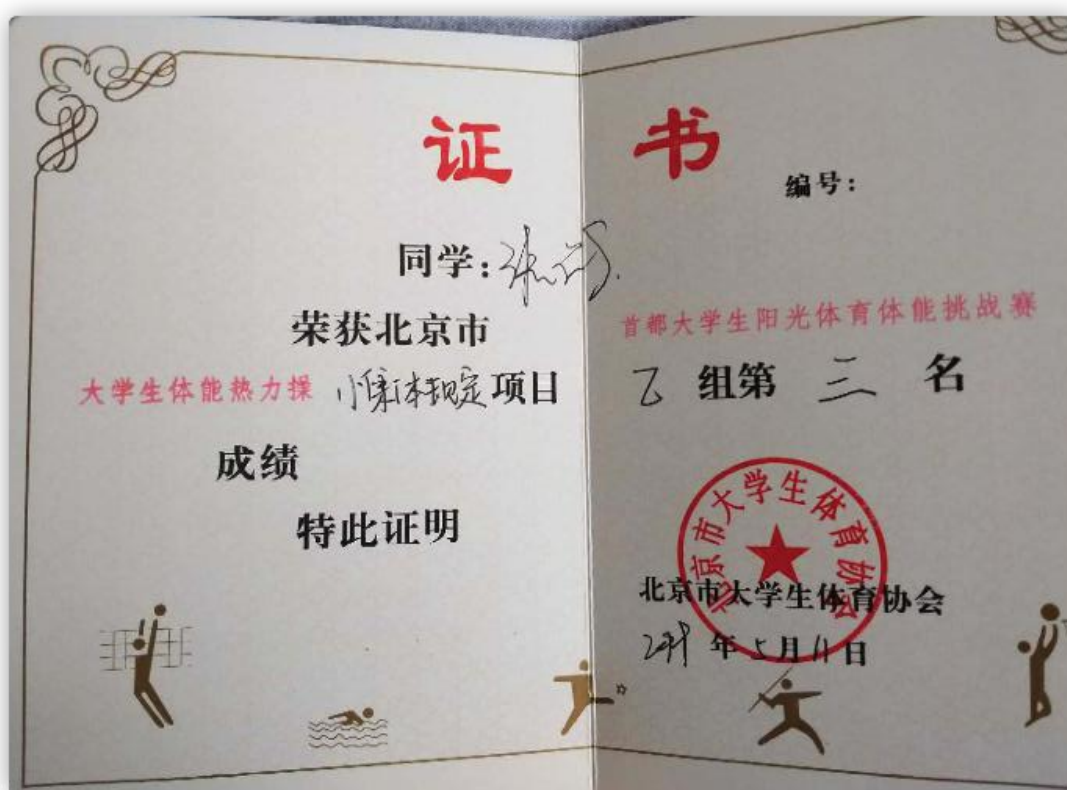 证 书
编号:
同学:张
荣获北京市 首都大学生阳光体育体能挑战赛
大学生体能热力操 小集体规定 项目 乙 组第 三 名
成绩
特此证明
北京市大学生体育协会
北京市大学生体育协会
年 5 月 11 日